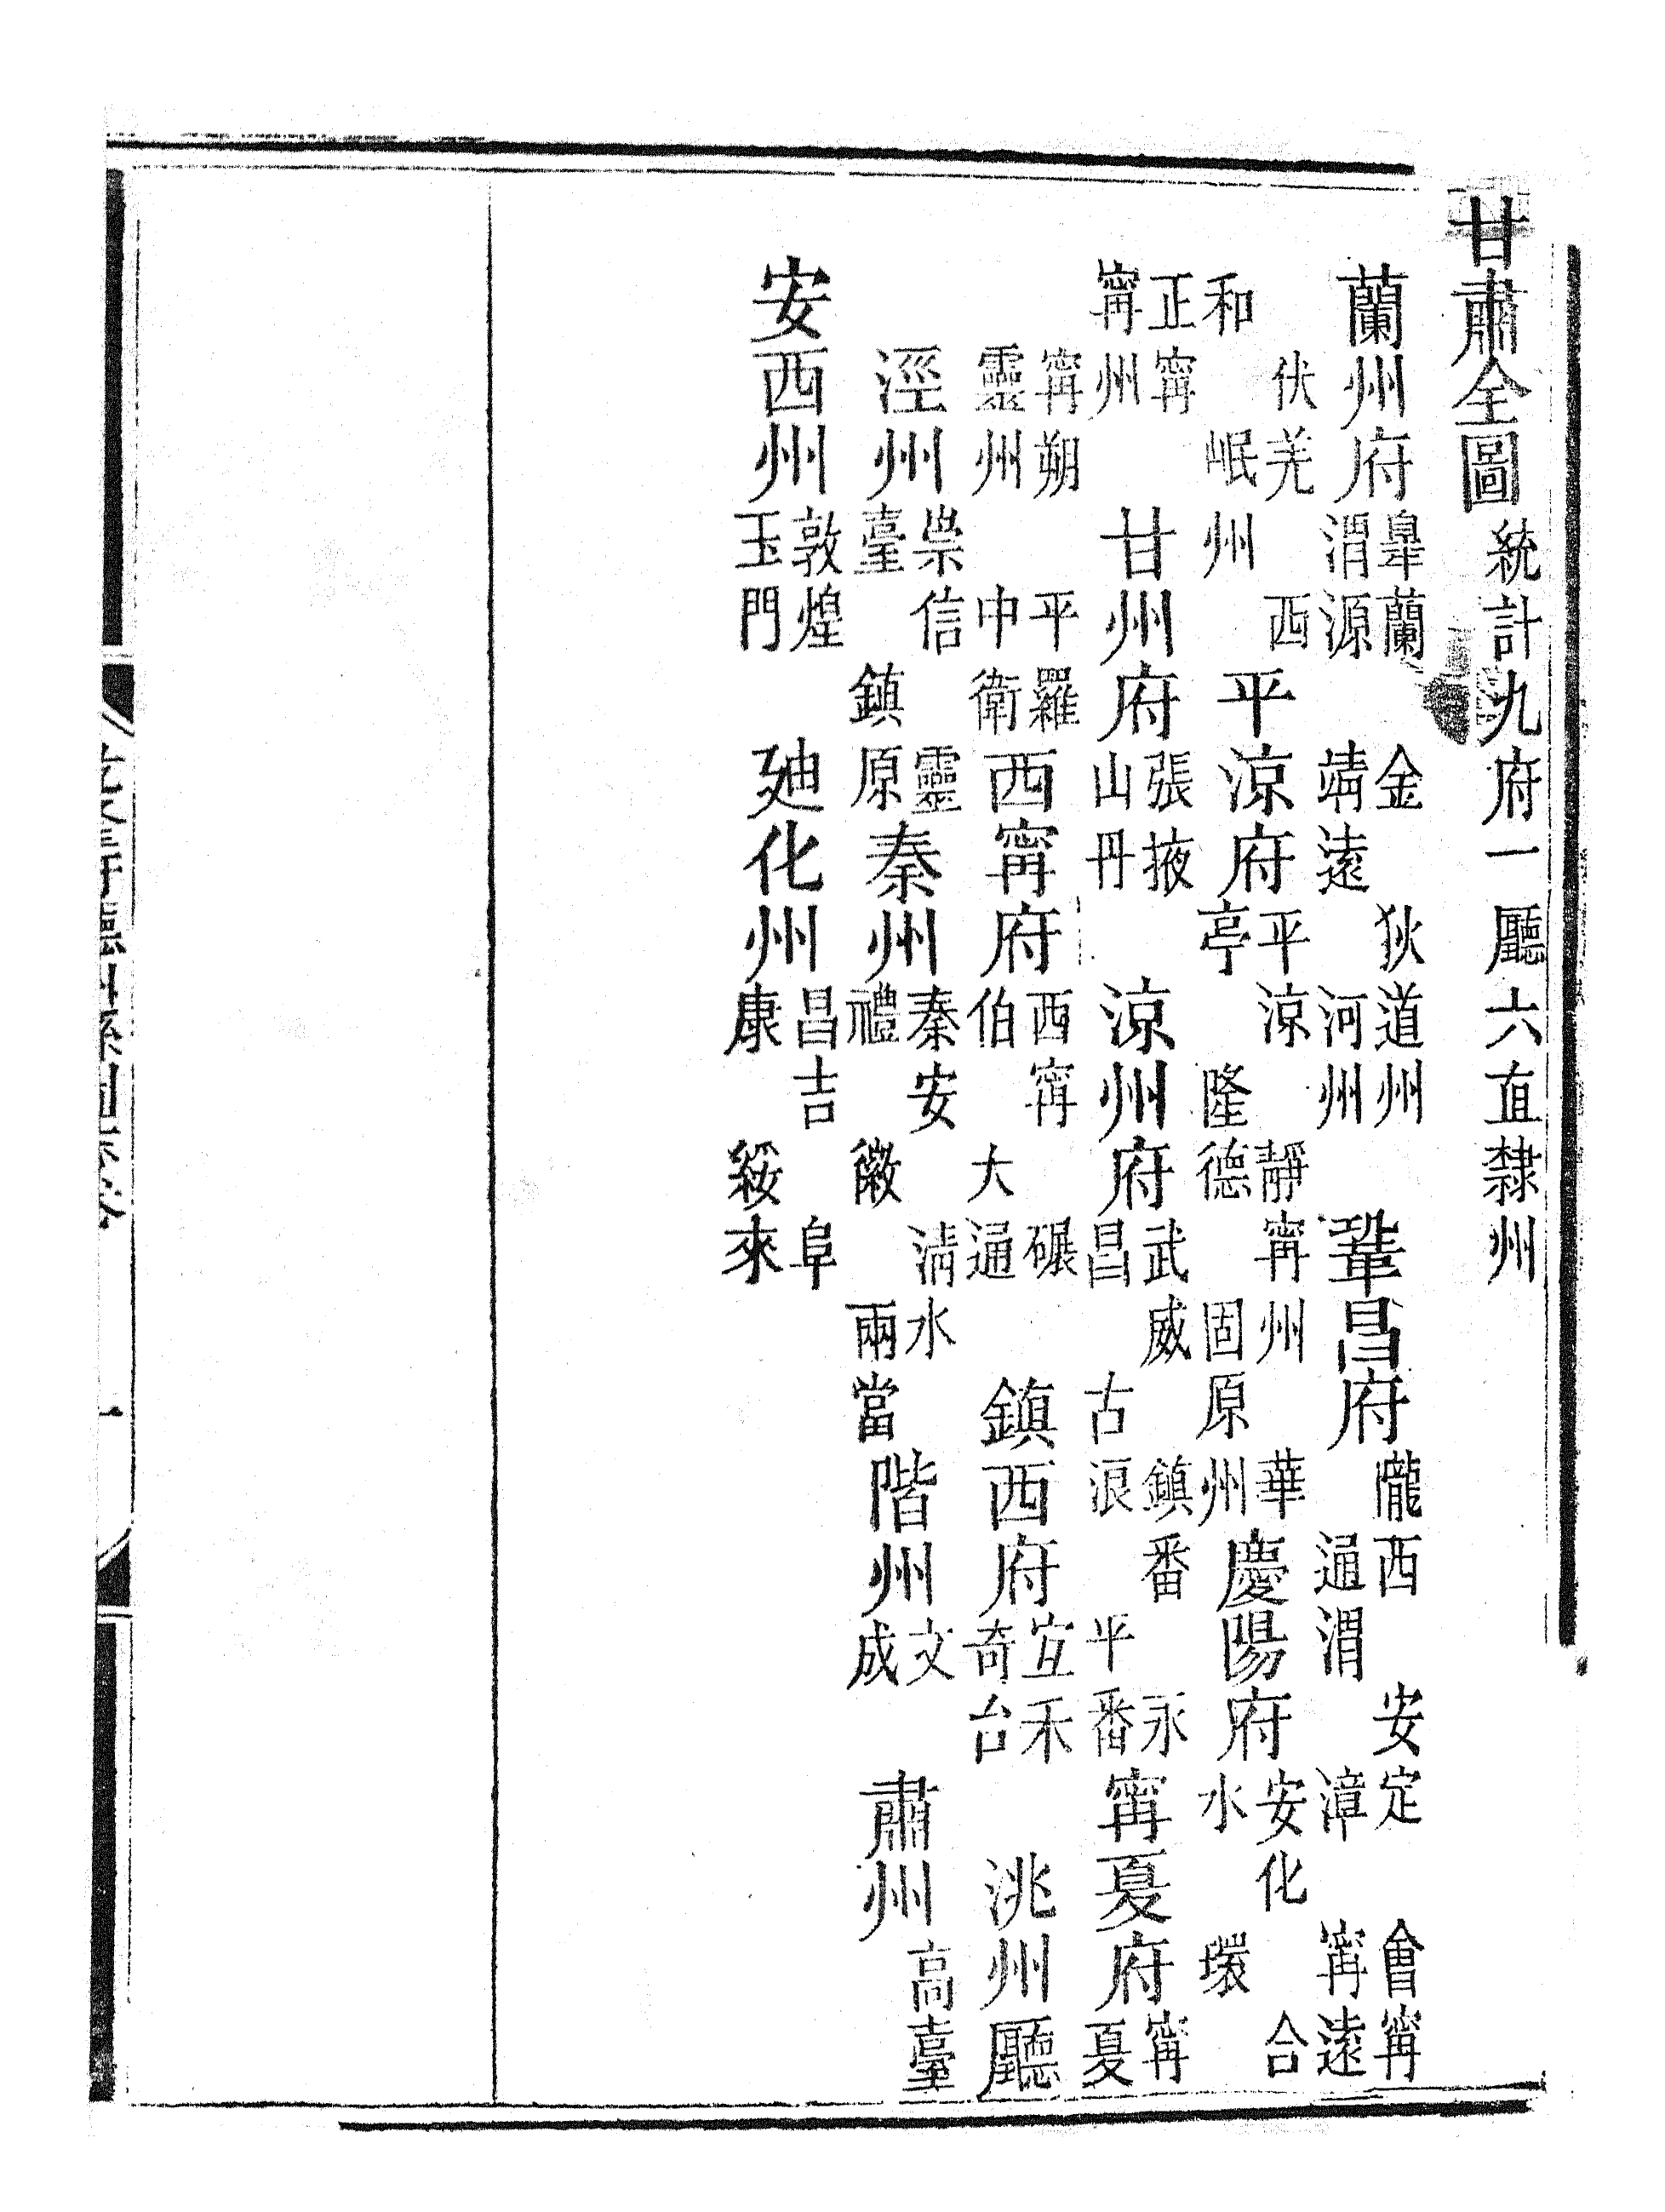 甘肅全圖 統計九府一廳六直隸州
蘭州府 皐蘭 金 狄道州 渭源 靖遠 河州 鞏昌府 隴西 安定 會甯 通渭 漳 甯遠
伏羌 西 和 岷州 平涼府 平涼 靜甯州 華亭 隆德 固原州 慶陽府 安化 合水 環
正甯 甯州 甘州府 張掖 山丹 涼州府 武威 鎮番 永昌 古浪 平番 甯夏府 甯夏
甯朔 平羅 靈州 中衛 西甯府 西甯 碾伯 大通 鎮西府 宜禾 奇台 洮州廳
涇州 崇信 靈臺 鎮原 秦州 秦安 清水 禮 徽 兩當 階州 文 成 肅州 高臺
安西州 敦煌 玉門 廸化州 昌吉 阜康 綏來